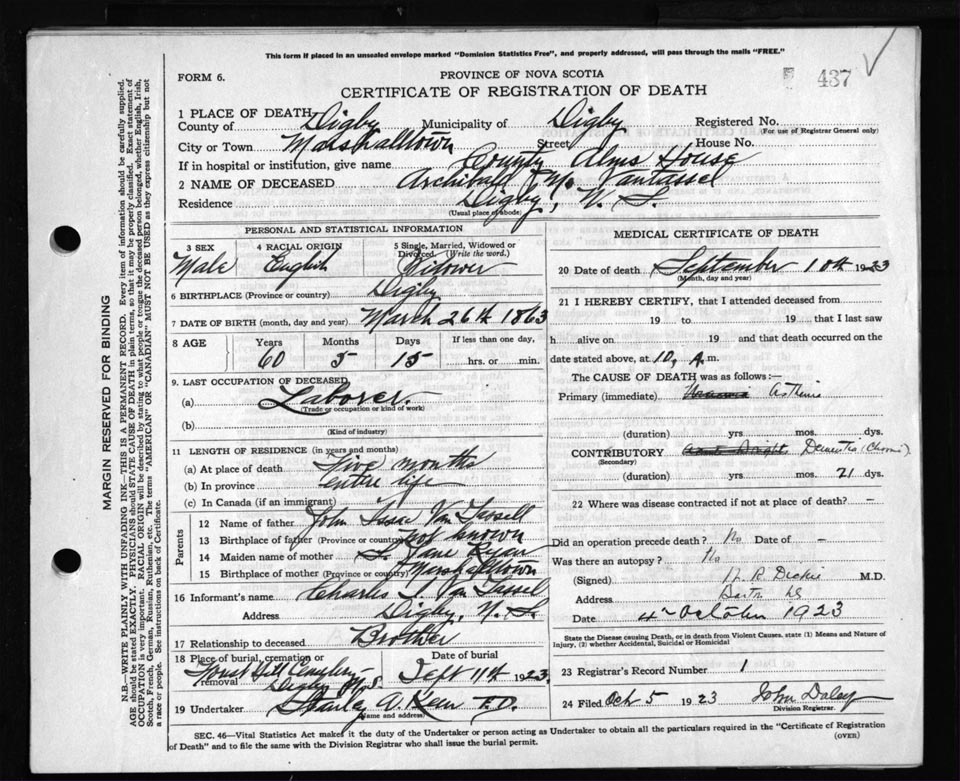 This form if placed in an unsealed envelope marked "Dominion Statistics Free", and properly addressed, will pass through the mails "FREE."
FORM 6.
PROVINCE OF NOVA SCOTIA
437
CERTIFICATE OF REGISTRATION OF DEATH
1 PLACE OF DEATH
County of Digby Municipality of Digby Registered No.
(For use of Registrar General only)
City or Town Marshalltown Street House No.
If in hospital or institution, give name County Alms House
2 NAME OF DECEASED Archibald Vantassel
Residence Digby, N. S.
(Usual place of abode)
PERSONAL AND STATISTICAL INFORMATION
3 SEX 4 RACIAL ORIGIN 5 Single, Married, Widowed or Divorced (Write the word.)
Male English Widower
6 BIRTHPLACE (Province or country) Digby
7 DATE OF BIRTH (month, day and year) March 26th 1863
8 AGE Years Months Days If less than one day,
60 5 15 hrs. or min.
9. LAST OCCUPATION OF DECEASED
(a) Laborer.
(Trade or occupation or kind of work)
(b)
(Kind of industry)
11 LENGTH OF RESIDENCE (in years and months)
(a) At place of death Five months
(b) In province entire life
(c) In Canada (if an immigrant)
Parents
12 Name of father John Isaac Van Tassell
13 Birthplace of father (Province or country) not known
14 Maiden name of mother Jane Ryan
15 Birthplace of mother (Province or country) Marshalltown
16 Informant's name Charles I. Van Tassel
Address Digby, N. S.
17 Relationship to deceased Brother
18 Place of burial, cremation or removal Date of burial
Digby Sept 11th 1923
19 Undertaker Stanley A. Keen
(Name and address)
MEDICAL CERTIFICATE OF DEATH
20 Date of death September 10th 1923
(Month, day and year)
21 I HEREBY CERTIFY, that I attended deceased from
19 to 19 that I last saw
h alive on 19 and that death occurred on the
date stated above, at 10, A. m.
The CAUSE OF DEATH was as follows:—
Primary (immediate)
(duration) yrs. mos. dys.
CONTRIBUTORY Dementia
(Secondary)
(duration) yrs. mos. 21 dys.
22 Where was disease contracted if not at place of death? —
Did an operation precede death? No Date of —
Was there an autopsy? No
(Signed) H R Dickie M.D.
Address Barton
Date 4th October 1923
State the Disease causing Death, or in death from Violent Causes, state (1) Means and Nature of
Injury, (2) whether Accidental, Suicidal or Homicidal
23 Registrar's Record Number 1
24 Filed Oct 5 1923 John Daley
Division Registrar.
SEC. 46—Vital Statistics Act makes it the duty of the Undertaker or person acting as Undertaker to obtain all the particulars required in the "Certificate of Registration
of Death" and to file the same with the Division Registrar who shall issue the burial permit.
(OVER)
MARGIN RESERVED FOR BINDING
N.B.—WRITE PLAINLY WITH UNFADING INK—THIS IS A PERMANENT RECORD. Every item of information should be carefully supplied.
AGE should be stated EXACTLY. PHYSICIANS should STATE CAUSE OF DEATH in plain terms, so that it may be properly classified. Exact statement of
OCCUPATION is very important. RACIAL ORIGIN will be described by stating to what people or tongue the deceased person belonged, whether English, Irish,
Scotch, French, German, Russian, Ruthenian, etc. The terms "AMERICAN" or "CANADIAN" MUST NOT BE USED as they express citizenship but not
a race or people. See instructions on back of Certificate.